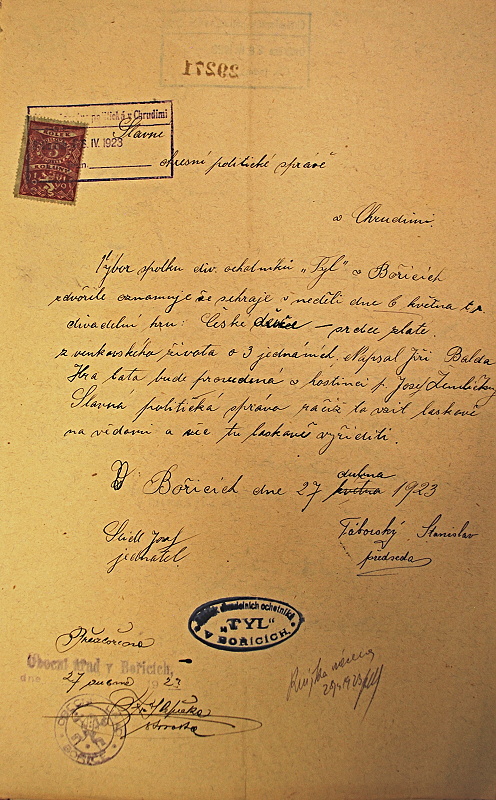 29271
politická v Chrudimi
IV. 1923
KOLEK
Slavné
okresní politické správě
v Chrudimi.
Výbor spolku div. ochotníků „Tyl" v Bořicích
zdvořile oznamuje že sehraje v neděli dne 6 května t. r.
divadelní hru: České srdce – srdce zlaté.
z venkovského života o 3 jednáních, Napsal Jiří Balda
Hra tato bude provedena v hostinci p. Josef
Slavná politická správa račiž to vzít laskavě
na vědomí a vše tu laskavě vyříditi.
V Bořicích dne 27 května dubna 1923
Seidl Josef
jednatel
Táborský Stanislav
předseda
divadelních ochotníků
„TYL"
V BOŘICÍCH.
Předloženo
Obecní úřad v Bořicích,
dne 27 dubna 1923
starosta